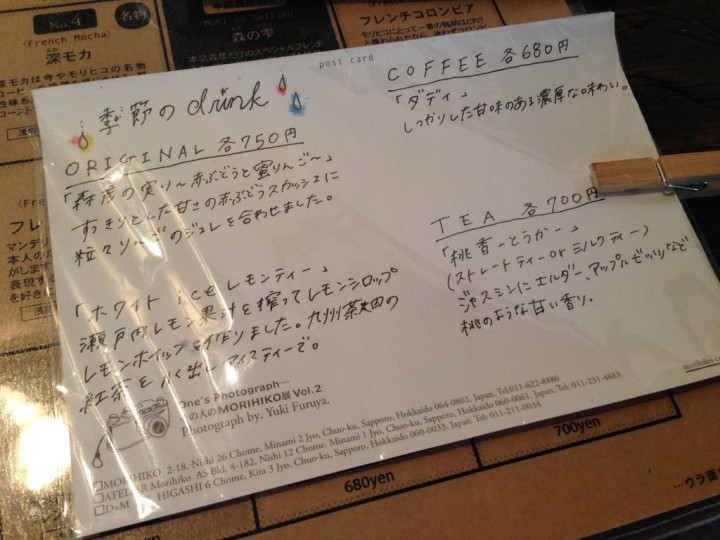 No.4
名物
(French Mocha)
深モカ
深モカは今やモリヒコの名物
森の雫
フレンチコロンビア
post card
季節の drink
ORIGINAL 各750円
「森彦の実り〜赤ぶどうと蜜りんご〜」
すっきりとした甘さの赤ぶどうスカッシュに
粒々りんごのジュレを合わせました。
「ホワイト ice レモンティー」
瀬戸内レモン果汁を搾ってレモンシロップ
レモンホイップを作りました。九州茶太田の
紅茶を水出しアイスティーで。
COFFEE 各680円
「ダディ」
しっかりした甘味のある濃厚な味わい。
TEA 各700円
「桃香ーとうかー」
(ストレートティー or ミルクティー)
ジャスミンにエルダー、アップルゼッツなど
桃のような甘い香り。
One's Photograph...
の人のMORIHIKO展 Vol.2
Photograph by. Yuki Furuya.
morihiko
MORIHIKO 2-18, Nishi 26 Chome, Minami 2 Jyo, Chuo-ku, Sapporo, Hokkaido 064-0802, Japan. Tel:011-622-8880
ATELIER Morihiko AS Bld. 4-182, Nishi 12 Chome, Minami 1 Jyo, Chuo-ku, Sapporo, Hokkaido 060-0061, Japan. Tel: 011-231-4883
D×M HIGASHI 6 Chome, Kita 3 Jyo, Chuo-ku, Sapporo, Hokkaido 060-0033, Japan. Tel: 011-211-0034
680yen
700yen
...ウラ面